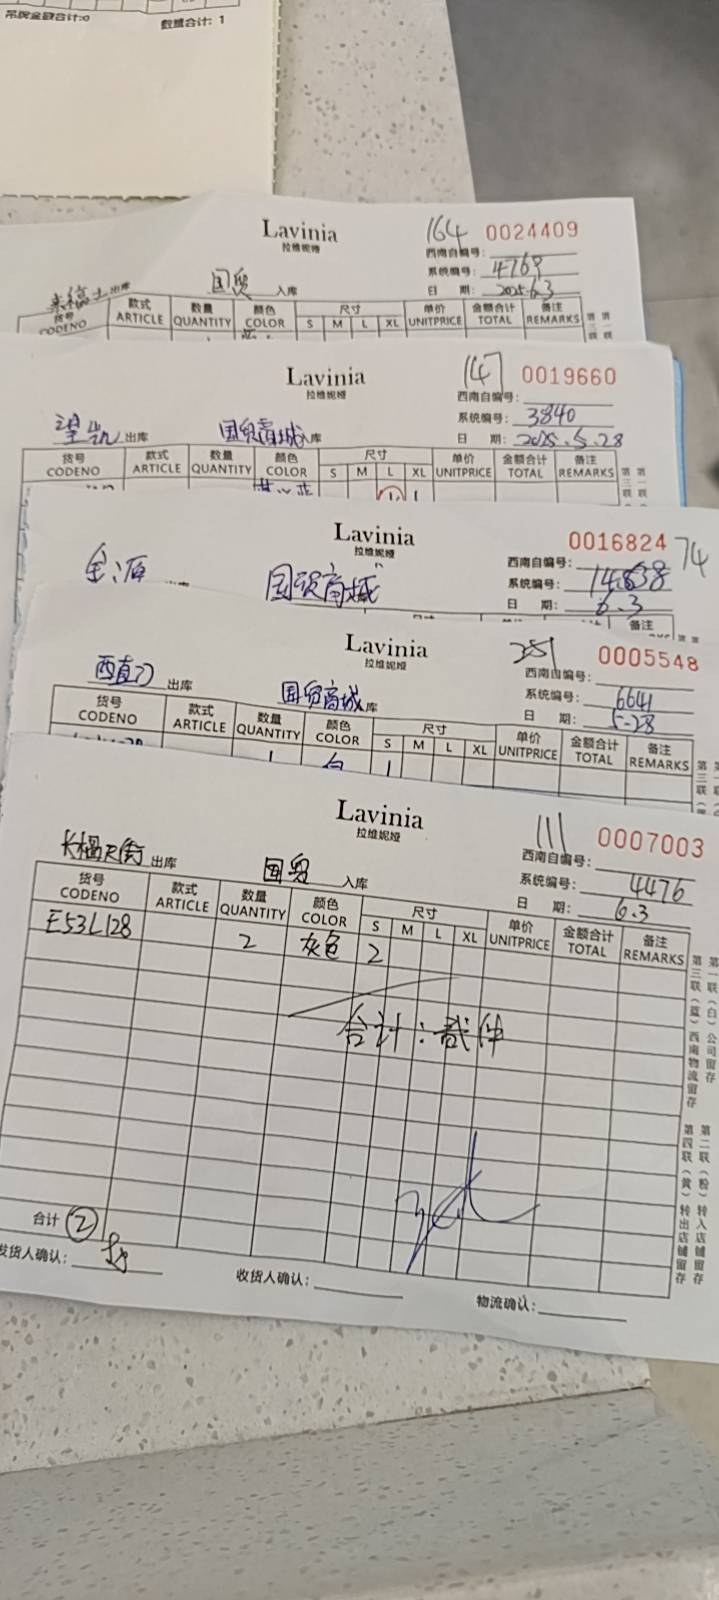 吊牌金额合计:0 数量合计: 1
Lavinia 164 0024409
拉维妮娅 西南自编号:
系统编号: 4769
出库 国贸 入库 日 期: 2025.6.3
货号 款式 数量 颜色 尺寸 单价 金额合计 备注
CODENO ARTICLE QUANTITY COLOR S M L XL UNITPRICE TOTAL REMARKS
Lavinia 147 0019660
拉维妮娅 西南自编号:
系统编号: 3840
望凯 出库 国贸商城 入库 日 期: 2025.5.28
货号 款式 数量 颜色 尺寸 单价 金额合计 备注
CODENO ARTICLE QUANTITY COLOR S M L XL UNITPRICE TOTAL REMARKS
第三联 第一联
Lavinia 0016824 74
拉维妮娅 西南自编号:
金源 国贸商城 系统编号:
日 期: 6.3
备注
Lavinia 0005548
拉维妮娅 西南自编号:
西直门 出库 国贸商城 入库 系统编号: 6641
日 期: 5-28
货号 款式 数量 颜色 尺寸 单价 金额合计 备注
CODENO ARTICLE QUANTITY COLOR S M L XL UNITPRICE TOTAL REMARKS
1 白 1
Lavinia 111 0007003
拉维妮娅 西南自编号:
长楹天街 出库 国贸 入库 系统编号: 4476
日 期: 6.3
货号 款式 数量 颜色 尺寸 单价 金额合计 备注
CODENO ARTICLE QUANTITY COLOR S M L XL UNITPRICE TOTAL REMARKS
E53L128 2 灰色 2
合计: 贰件
第一联(白)公司留存
第三联(蓝)西南物流留存
第二联(粉)转入店铺留存
第四联(黄)转出店铺留存
合计 2
发货人确认: 收货人确认: 物流确认: